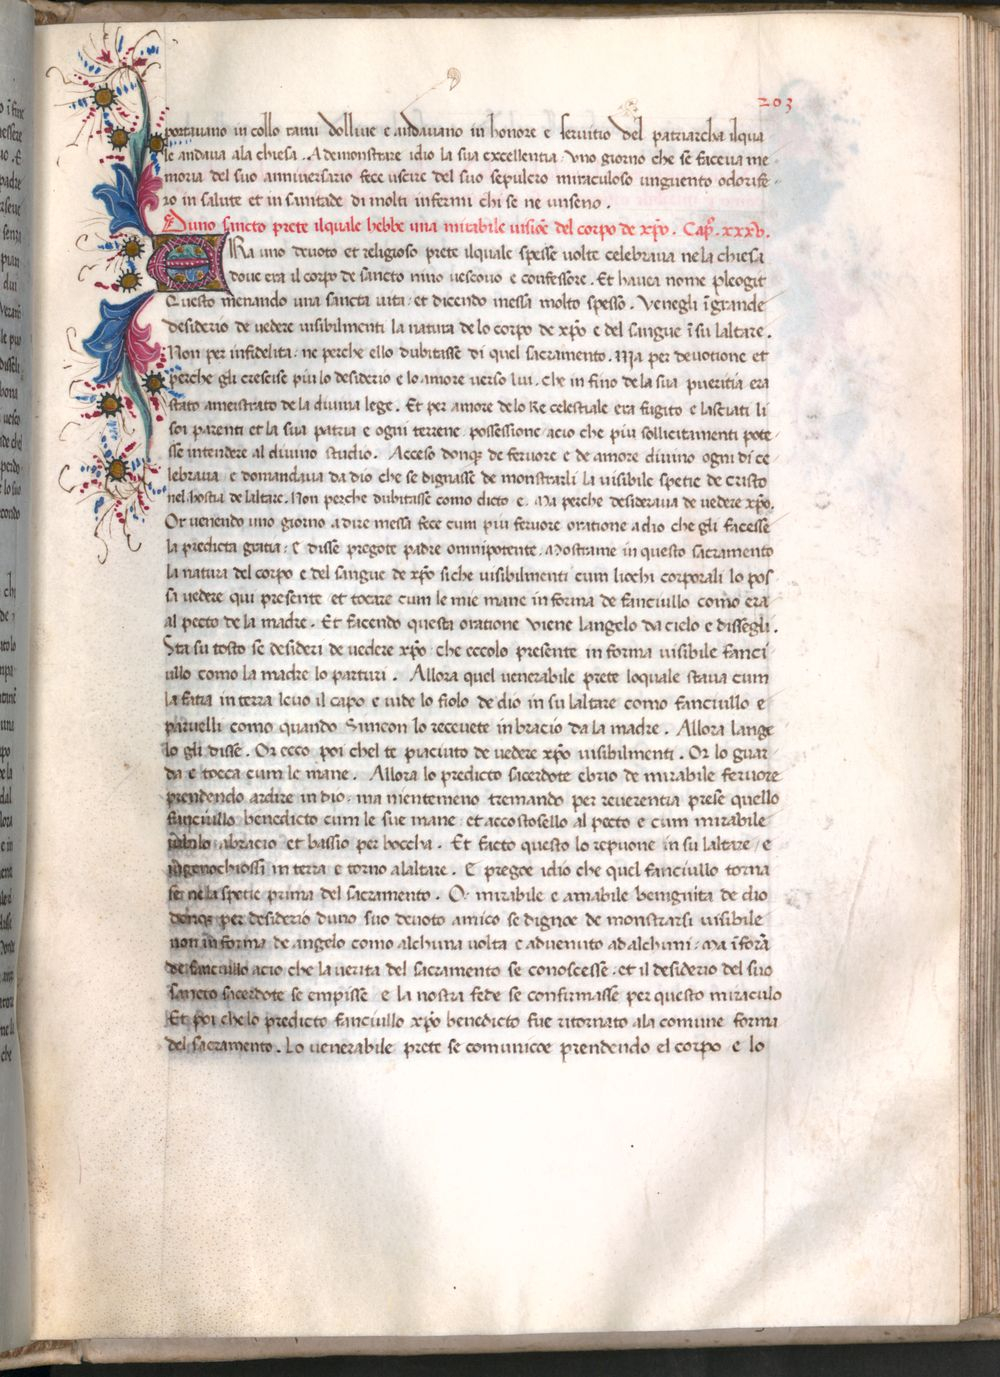 203
portauano in collo rami dolliue e andauano in honore e seruitio del patriarcha ilqua
le andaua ala chiesa . A demonstrare idio la sua excellentia . Vno giorno che se faceua me
moria del suo anniuersario fece uscire del suo sepulcro miraculoso unguento odorife
ro in salute et in sanitade di molti infermi chi se ne unseno .
Duno sancto prete ilquale hebbe una mirabile uisiõe del corpo de xp̃o . Cap̃. xxxv.
ERa uno deuoto et religioso prete ilquale spesse uolte celebraua ne la chiesa
doue era il corpo de sancto nino uescouo e confessore . Et haueua nome pleogit
Questo menando una sancta uita : et dicendo messa molto spesso . Venegli ĩ grande
desiderio de uedere uisibilmenti la natura de lo corpo de xp̃o e del sangue ĩ su laltare .
Non per infidelita . ne perche ello dubitasse di quel sacramento . Ma per deuotione et
perche gli crescise piu lo desiderio e lo amore uerso lui . che in fino de la sua pueritia era
stato ameistrato de la diuina lege . Et per amore de lo Re celestiale era fugito e lasciati li
soi parenti et la sua patria e ogni terrene possessione acio che piu sollicitamenti pote
sse intendere al diuino studio . Acceso donq̃ de feruore e de amore diuino ogni di ce
lebraua e domandaua da dio che se dignasse de monstrarli la uisibile spetie de Cristo
nel hostia de laltare . Non perche dubitasse como dicto e . Ma perche desideraua de uedere xp̃o .
Or uenendo uno giorno a dire messa fece cum piu feruore oratione a dio che gli facesse
la predicta gratia : E disse pregote padre omnipotente . Mostrame in questo sacramento
la natura del corpo e del sangue de xp̃o siche uisibilmenti cum liochi corporali lo pos
si uedere qui presente et tocare cum le mie mane in forma de fanciullo como era
al pecto de la madre . Et facendo questa oratione viene langelo da cielo e dissegli .
Sta su tosto se desideri de uedere xp̃o che eccolo presente in forma uisibile fanci
ullo como la madre lo parturi . Allora quel uenerabile prete loquale staua cum
la fatia in terra leuo il capo e uide lo fiolo de dio in su laltare como fanciullo e
paruelli como quando Simeon lo receuete in bracio da la madre . Allora lange
lo gli disse . Or ecco poi chel te piaciuto de uedere xp̃o uisibilmenti . Or lo guar
da e tocca cum le mane . Allora lo predicto sacerdote ebrio de mirabile feruore
prendendo ardire in dio . ma nientemeno tremando per reuerentia prese quello
fanciullo benedicto cum le sue mane et accostosello al pecto e cum mirabile
iubilo abracio et bassio per boccha . Et facto questo lo repuone in su laltare e
ingenochiossi in terra e torno alaltare . E pregoe idio che quel fanciullo torna
sse ne la spetie prima del sacramento . O mirabile e amabile benignita de dio
donq̃ per desiderio duno suo deuoto amico se dignoe de monstrarsi uisibile
non in forma de angelo como alchuna uolta e aduenuto ad alchuni . Ma ĩ forã
de fanciullo acio che la uerita del sacramento se conoscesse . et il desiderio del suo
sancto sacerdote se empisse e la nostra fede se confirmasse per questo miraculo
Et poi che lo predicto fanciullo xp̃o benedicto fue ritornato ala comune forma
del sacramento . Lo uenerabile prete se comunicoe prendendo el corpo e lo